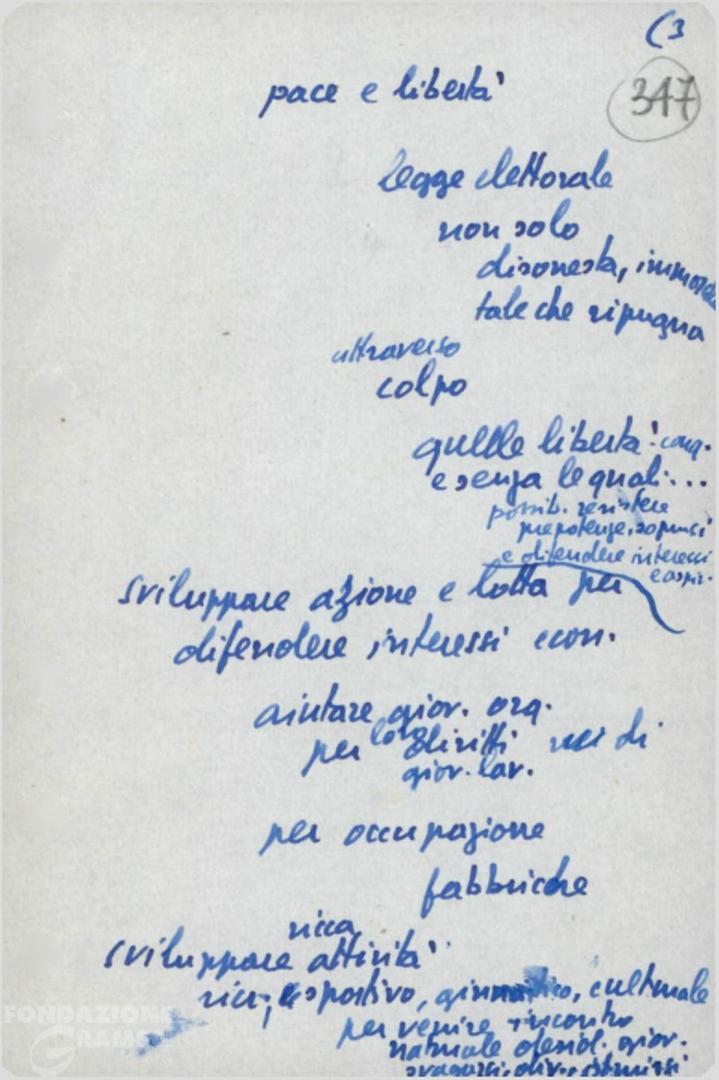 (3
347
pace e libertà
legge elettorale
non solo
disonesta, immorale
tale che ripugna
attraverso
colpo
quelle libertà conq.
e senza le quali...
possib. resistere
prepotenze, soprusi
e difendere interessi
e aspir.
sviluppare azione e lotta per
difendere interessi econ.
aiutare giov. org.
per loro diritti di
giov. lav.
per occupazione
fabbriche
ricca
sviluppare attività
ricr., sportivo, ginnastico, culturale
per venire incontro
naturale desid. giov.
ragazzi, div. istruirsi
FONDAZIONE
GRAMSCI